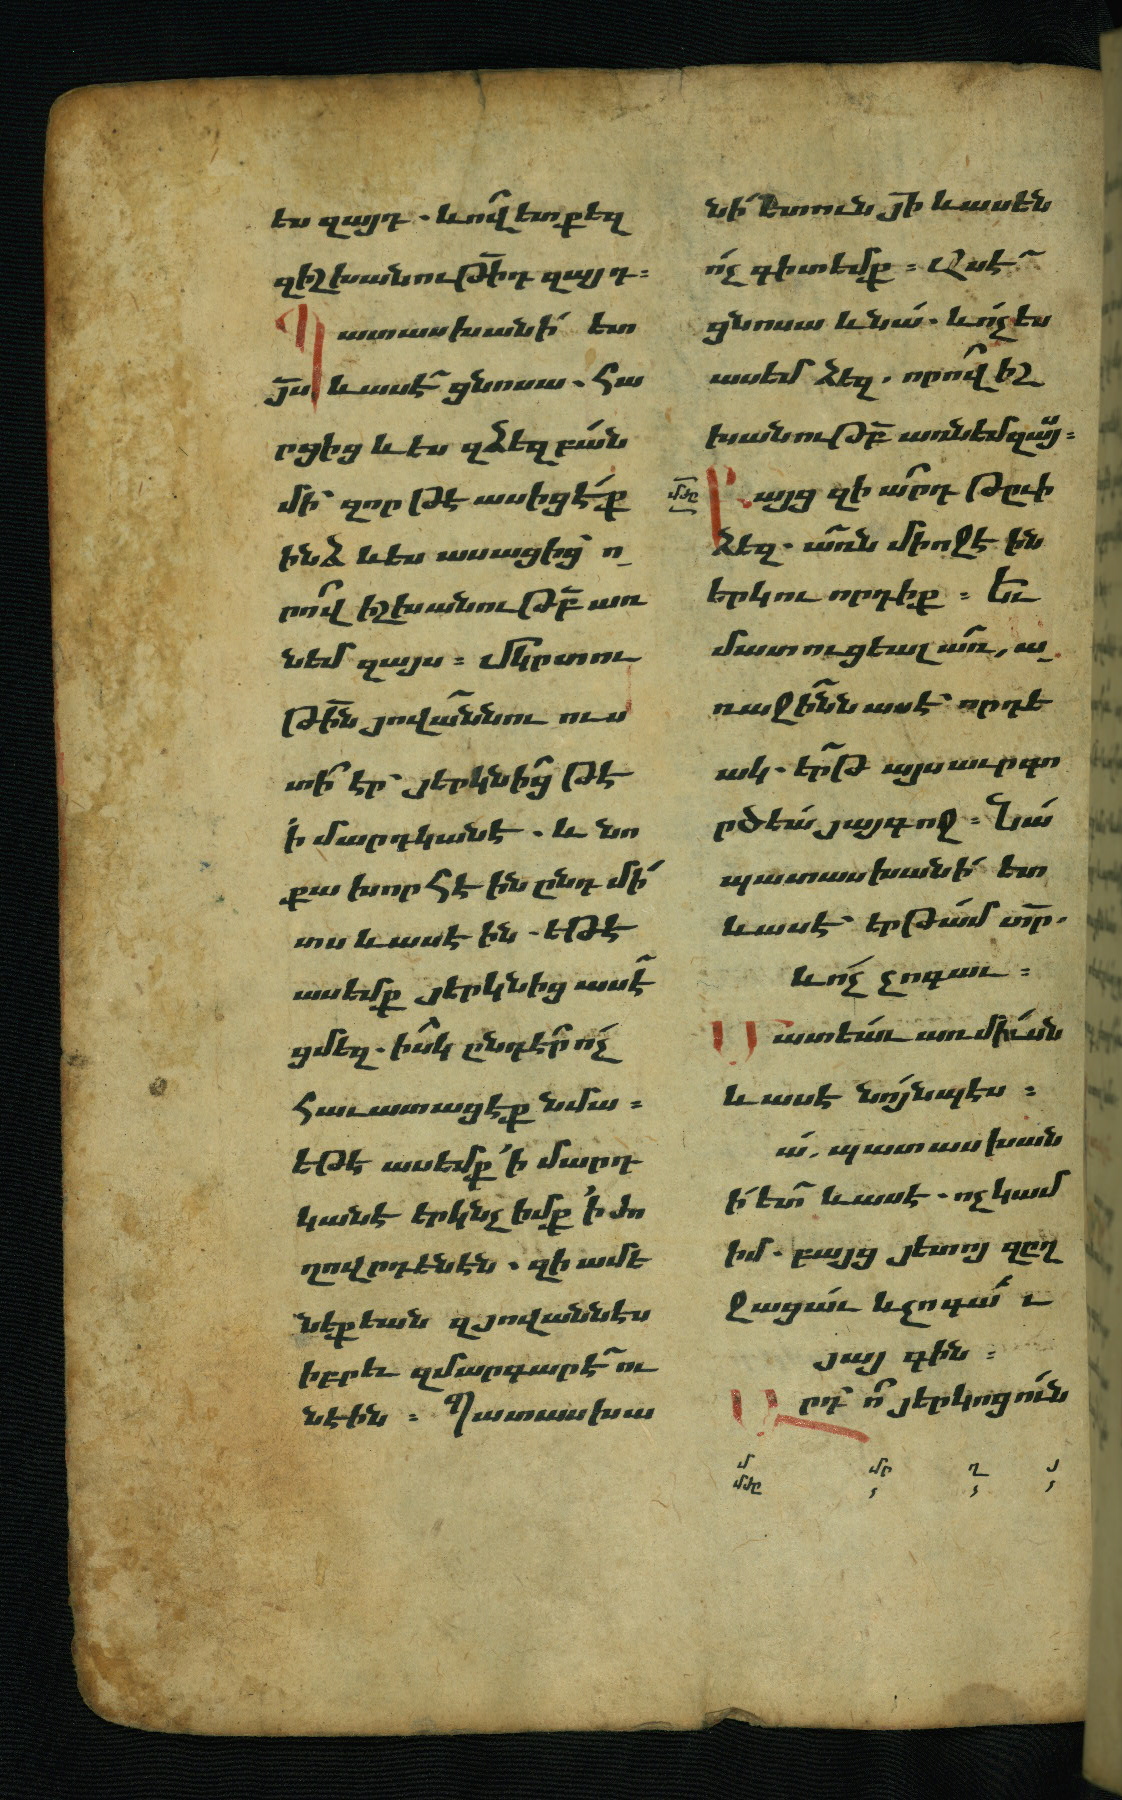 ես զայդ . և ո՞վ ետ քեզ
զիշխանութի՟դ զայդ ։
Պատասխանի՛ ետ
յ՟ս և ասէ՟ ցնոսա . Հա
րցից և ես զձեզ բա՛ն
մի՟ զոր թէ ասիցէ՛ք
ինձ և ես ասացից՟ ո
րո՞վ իշխանութբ՟ առ
նեմ զայս ։ Մկրտու
թի՟ն յովա՟ննու ուս
տի՞ էր՟ յերկնի՞ց թէ
ի՛ մարդկանէ . և նո
քա խորհէին ընդ մի՛
տս և ասէին . եթէ
ասեմք յերկնից ասէ՟
ցմեզ . ի՟սկ ընդէ՞ր ո՛չ
հաւատացէք նմա ։
եթէ ասեմք ՛ի մարդ
կանէ երկնչիմք ՛ի ժո
ղովրդենէն . զի ամե
նեքեան զյովաննէս
իբրև զմարգարէ՟ ու
նէին ։ Պատասխա
նի՛ ետուն յ՟ի և ասեն
ո՛չ գիտեմք ։ Ասէ՟
ցնոսա և նա՛ . և ո՛չ ես
ասեմ ձեզ . որո՞վ իշ
խանութբ՟ առնեմ զայս ։
մժը Բայց զի ա՞րդ թըւի
ձեզ . ա՟ռն միոջ էին
երկու որդիք ։ Եւ
մատուցեալ ա՟ռ, ա
ռաջի՟նն ասէ՟ որդե
ակ . ե՟րթ այսաւր գո
րծեա՛ յայգոջ ։ Նա՛
պատասխանի՛ ետ
և ասէ՟ երթա՛մ տ՟ր .
և ո՛չ չոգաւ ։
Մատեա՛ւ առ միւսն
և ասէ նո՛յնպէս ։
ա՛, պատասխան
ի՛ ետ՟ և ասէ . ոչ կամ
իմ . բայց յետոյ զըղ
ջացա՛ւ և չոգա՛ ւ
յայ գին ։
Արդ՟ ո՞ յերկոցո՛ւն
մ մր ղ յ
մժը